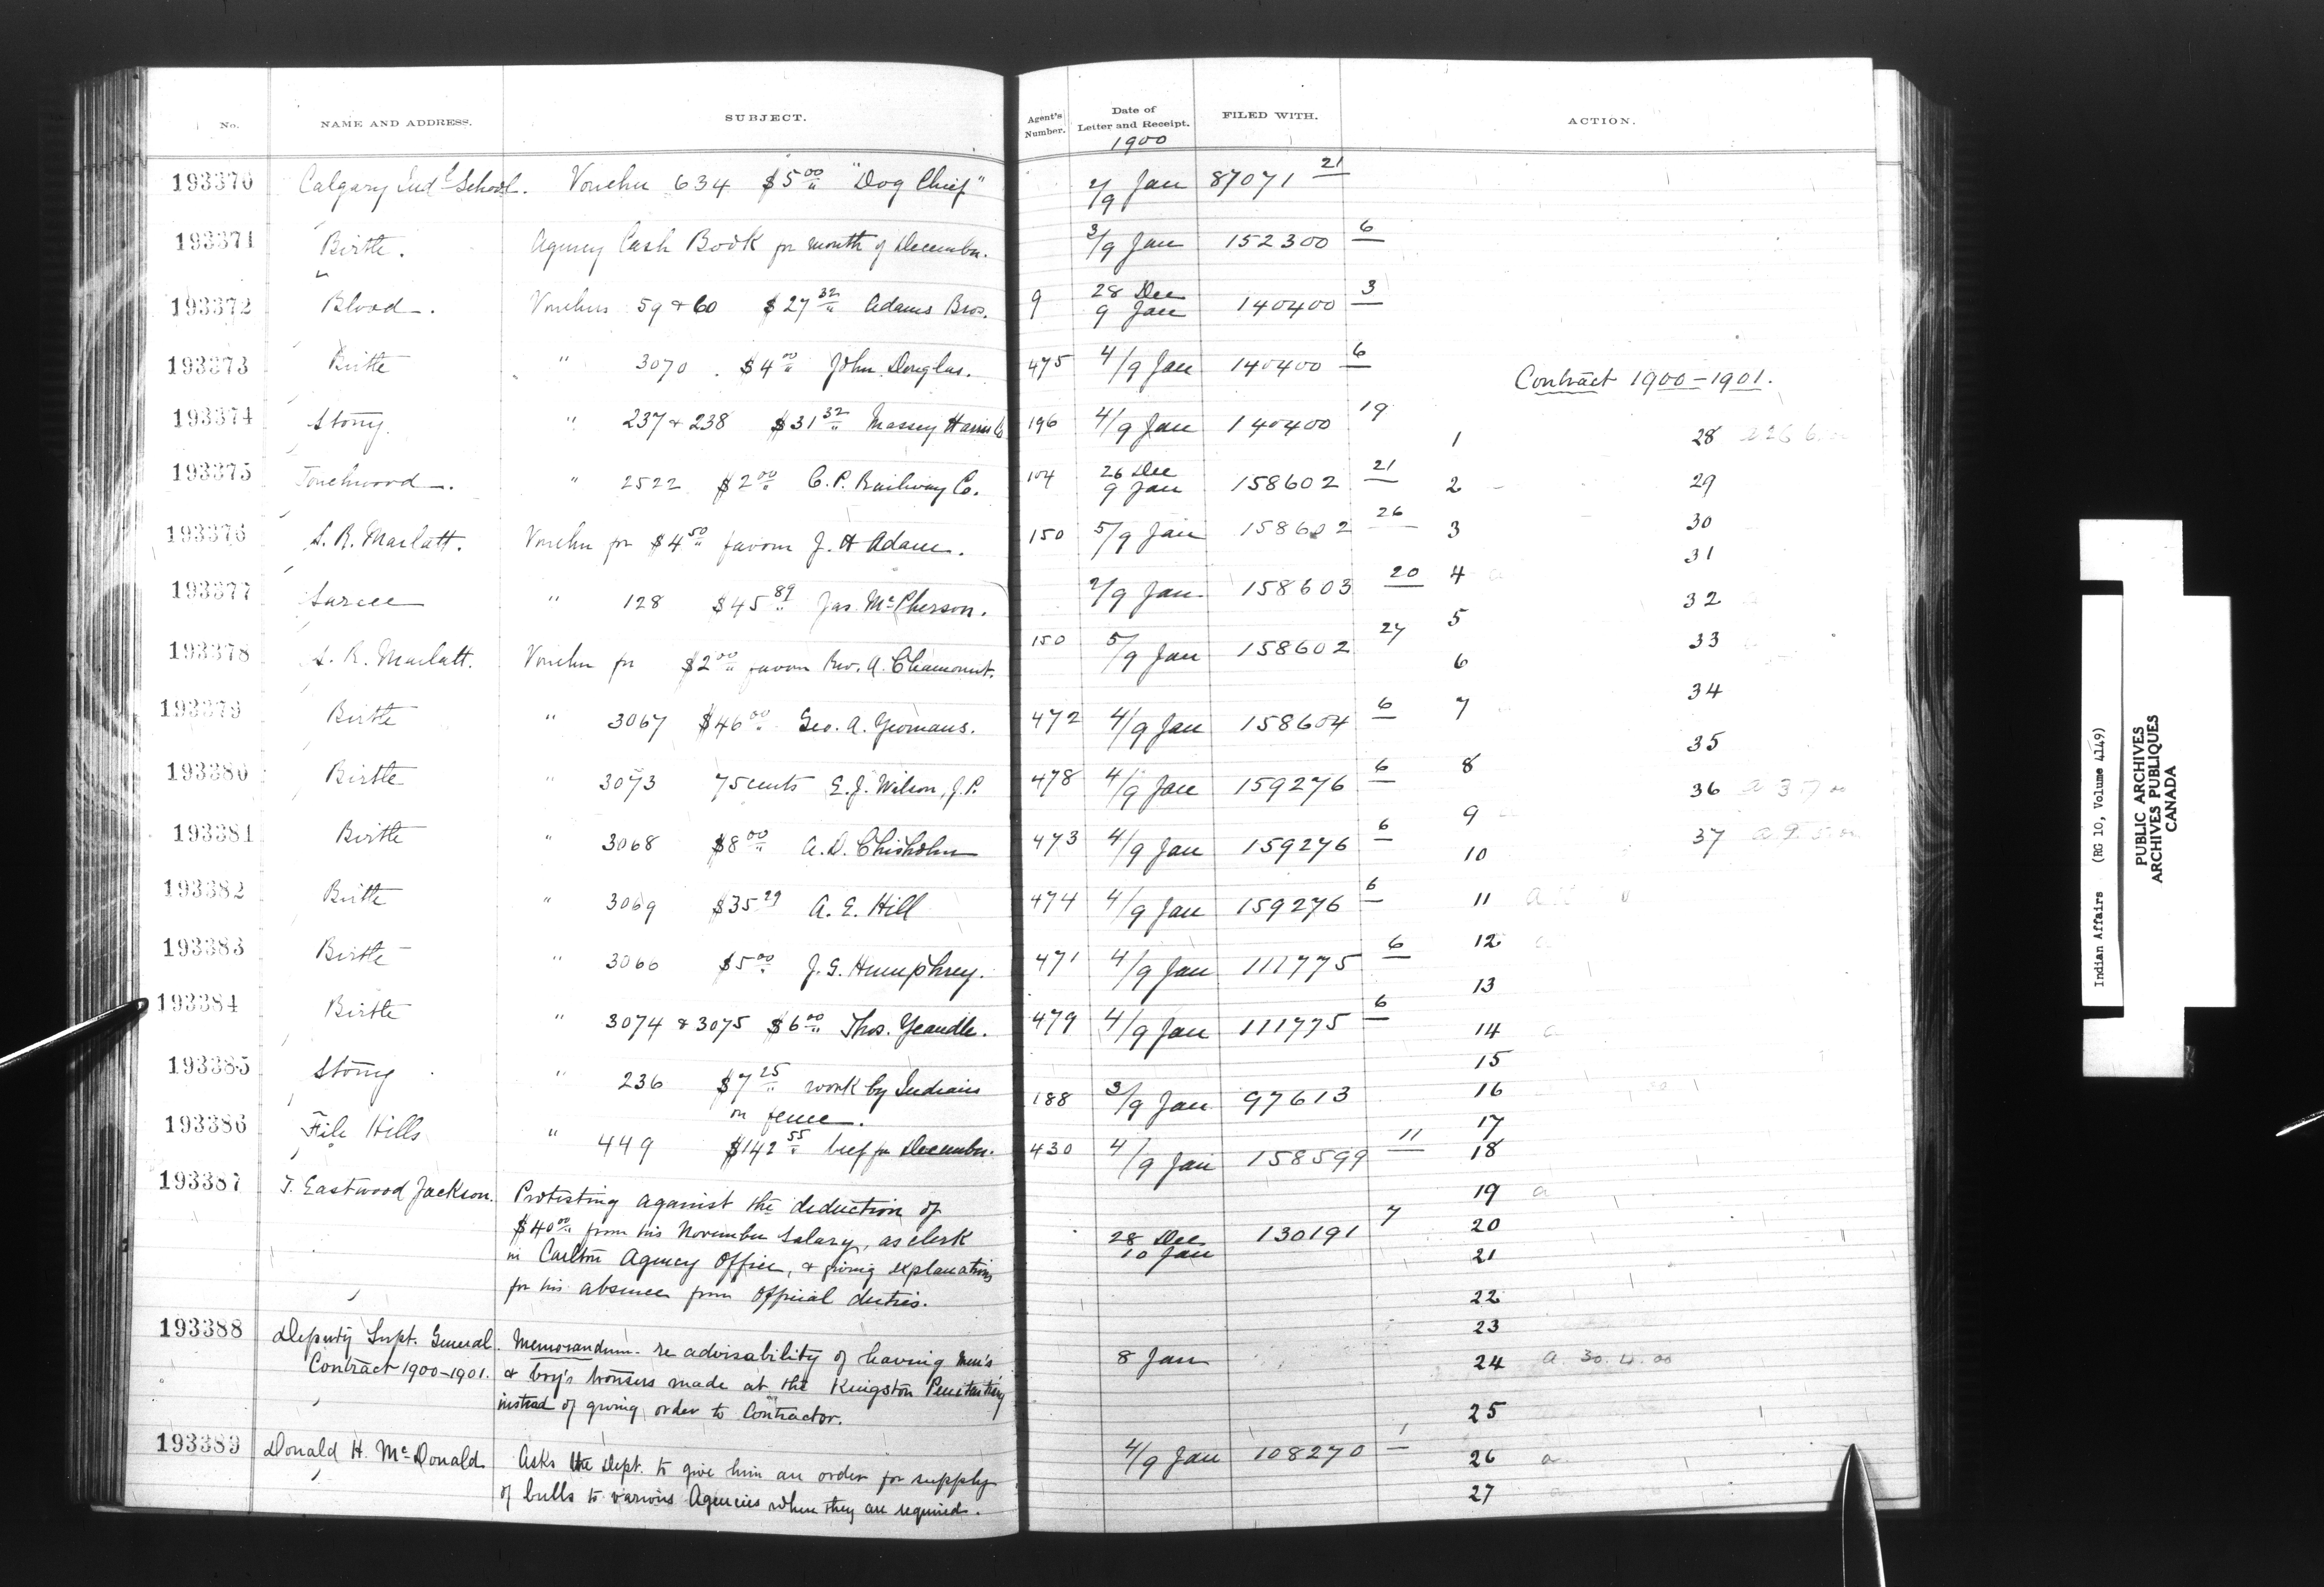 No. NAME AND ADDRESS. SUBJECT. Agent's Number. Date of Letter and Receipt. FILED WITH. ACTION.
1900
193370 Calgary Ind'l School. Voucher 634 $5 00 "Dog Chief" 2/9 Jan 87071 21
193371 Birtle. Agency Cash Book for month of December. 3/9 Jan 152300 6
193372 Blood. Vouchers 59 & 60 $27 32 Adams Bros. 9 28 Dec 9 Jan 140400 3
193373 Birtle " 3070 $4 00 John Douglas. 475 4/9 Jan 140400 6
Contract 1900-1901.
193374 Stony. " 237 & 238 $31 32 Massey Harris Co 196 4/9 Jan 140400 19
1 28
193375 Touchwood. " 2522 $2 00 C. P. Railway Co. 104 26 Dec 9 Jan 158602 21
2 29
193376 S. R. Marlatt. Voucher for $4 50 favour J. H Adam. 150 5/9 Jan 158602 26
3 30
31
193377 Sarcee " 128 $45 89 Jas. McPherson. 2/9 Jan 158603 20
4 32
193378 S. R. Marlatt. Voucher for $2 00 favour Rev. A. Chaumont. 150 5/9 Jan 158602 27
5 33
6
193379 Birtle " 3067 $46 00 Geo. A. Yeomans. 472 4/9 Jan 158604 6
7 34
35
193380 Birtle " 3073 75 cents E. J. Wilson, J. P. 478 4/9 Jan 159276 6
8 36
193381 Birtle " 3068 $8 00 A. D. Chisholm 473 4/9 Jan 159276 6
9 37
10
193382 Birtle " 3069 $35 29 A. E. Hill 474 4/9 Jan 159276 6
11
193383 Birtle " 3066 $5 00 J. G. Humphrey. 471 4/9 Jan 111775 6
12
13
193384 Birtle " 3074 & 3075 $6 00 Thos. Yeandle. 479 4/9 Jan 111775 6
14 a
15
193385 Stony " 236 $7 25 work by Indians
on fence. 188 3/9 Jan 97613
16
193386 File Hills " 449 $142 55 beef for December. 430 4/9 Jan 158599 11
17
18
193387 T. Eastwood Jackson. Protesting against the deduction of
$40 00 from his November Salary, as clerk 28 Dec 10 Jan 130191 7
in Carlton Agency Office, & giving explanations
for his absence from Official duties.
19 a
20
21
22
23
193388 Deputy Supt. General. Memorandum re advisability of having men's 8 Jan
Contract 1900-1901. & boy's trousers made at the Kingston Penitentiary
instead of giving order to Contractor.
24 a. 30. 4. 00
25
193389 Donald H. McDonald Asks the Dept. to give him an order for supply 4/9 Jan 108270 1
of bulls to various Agencies when they are required.
26 a
27
Indian Affairs (RG 10, Volume 4149)
PUBLIC ARCHIVES
ARCHIVES PUBLIQUES
CANADA